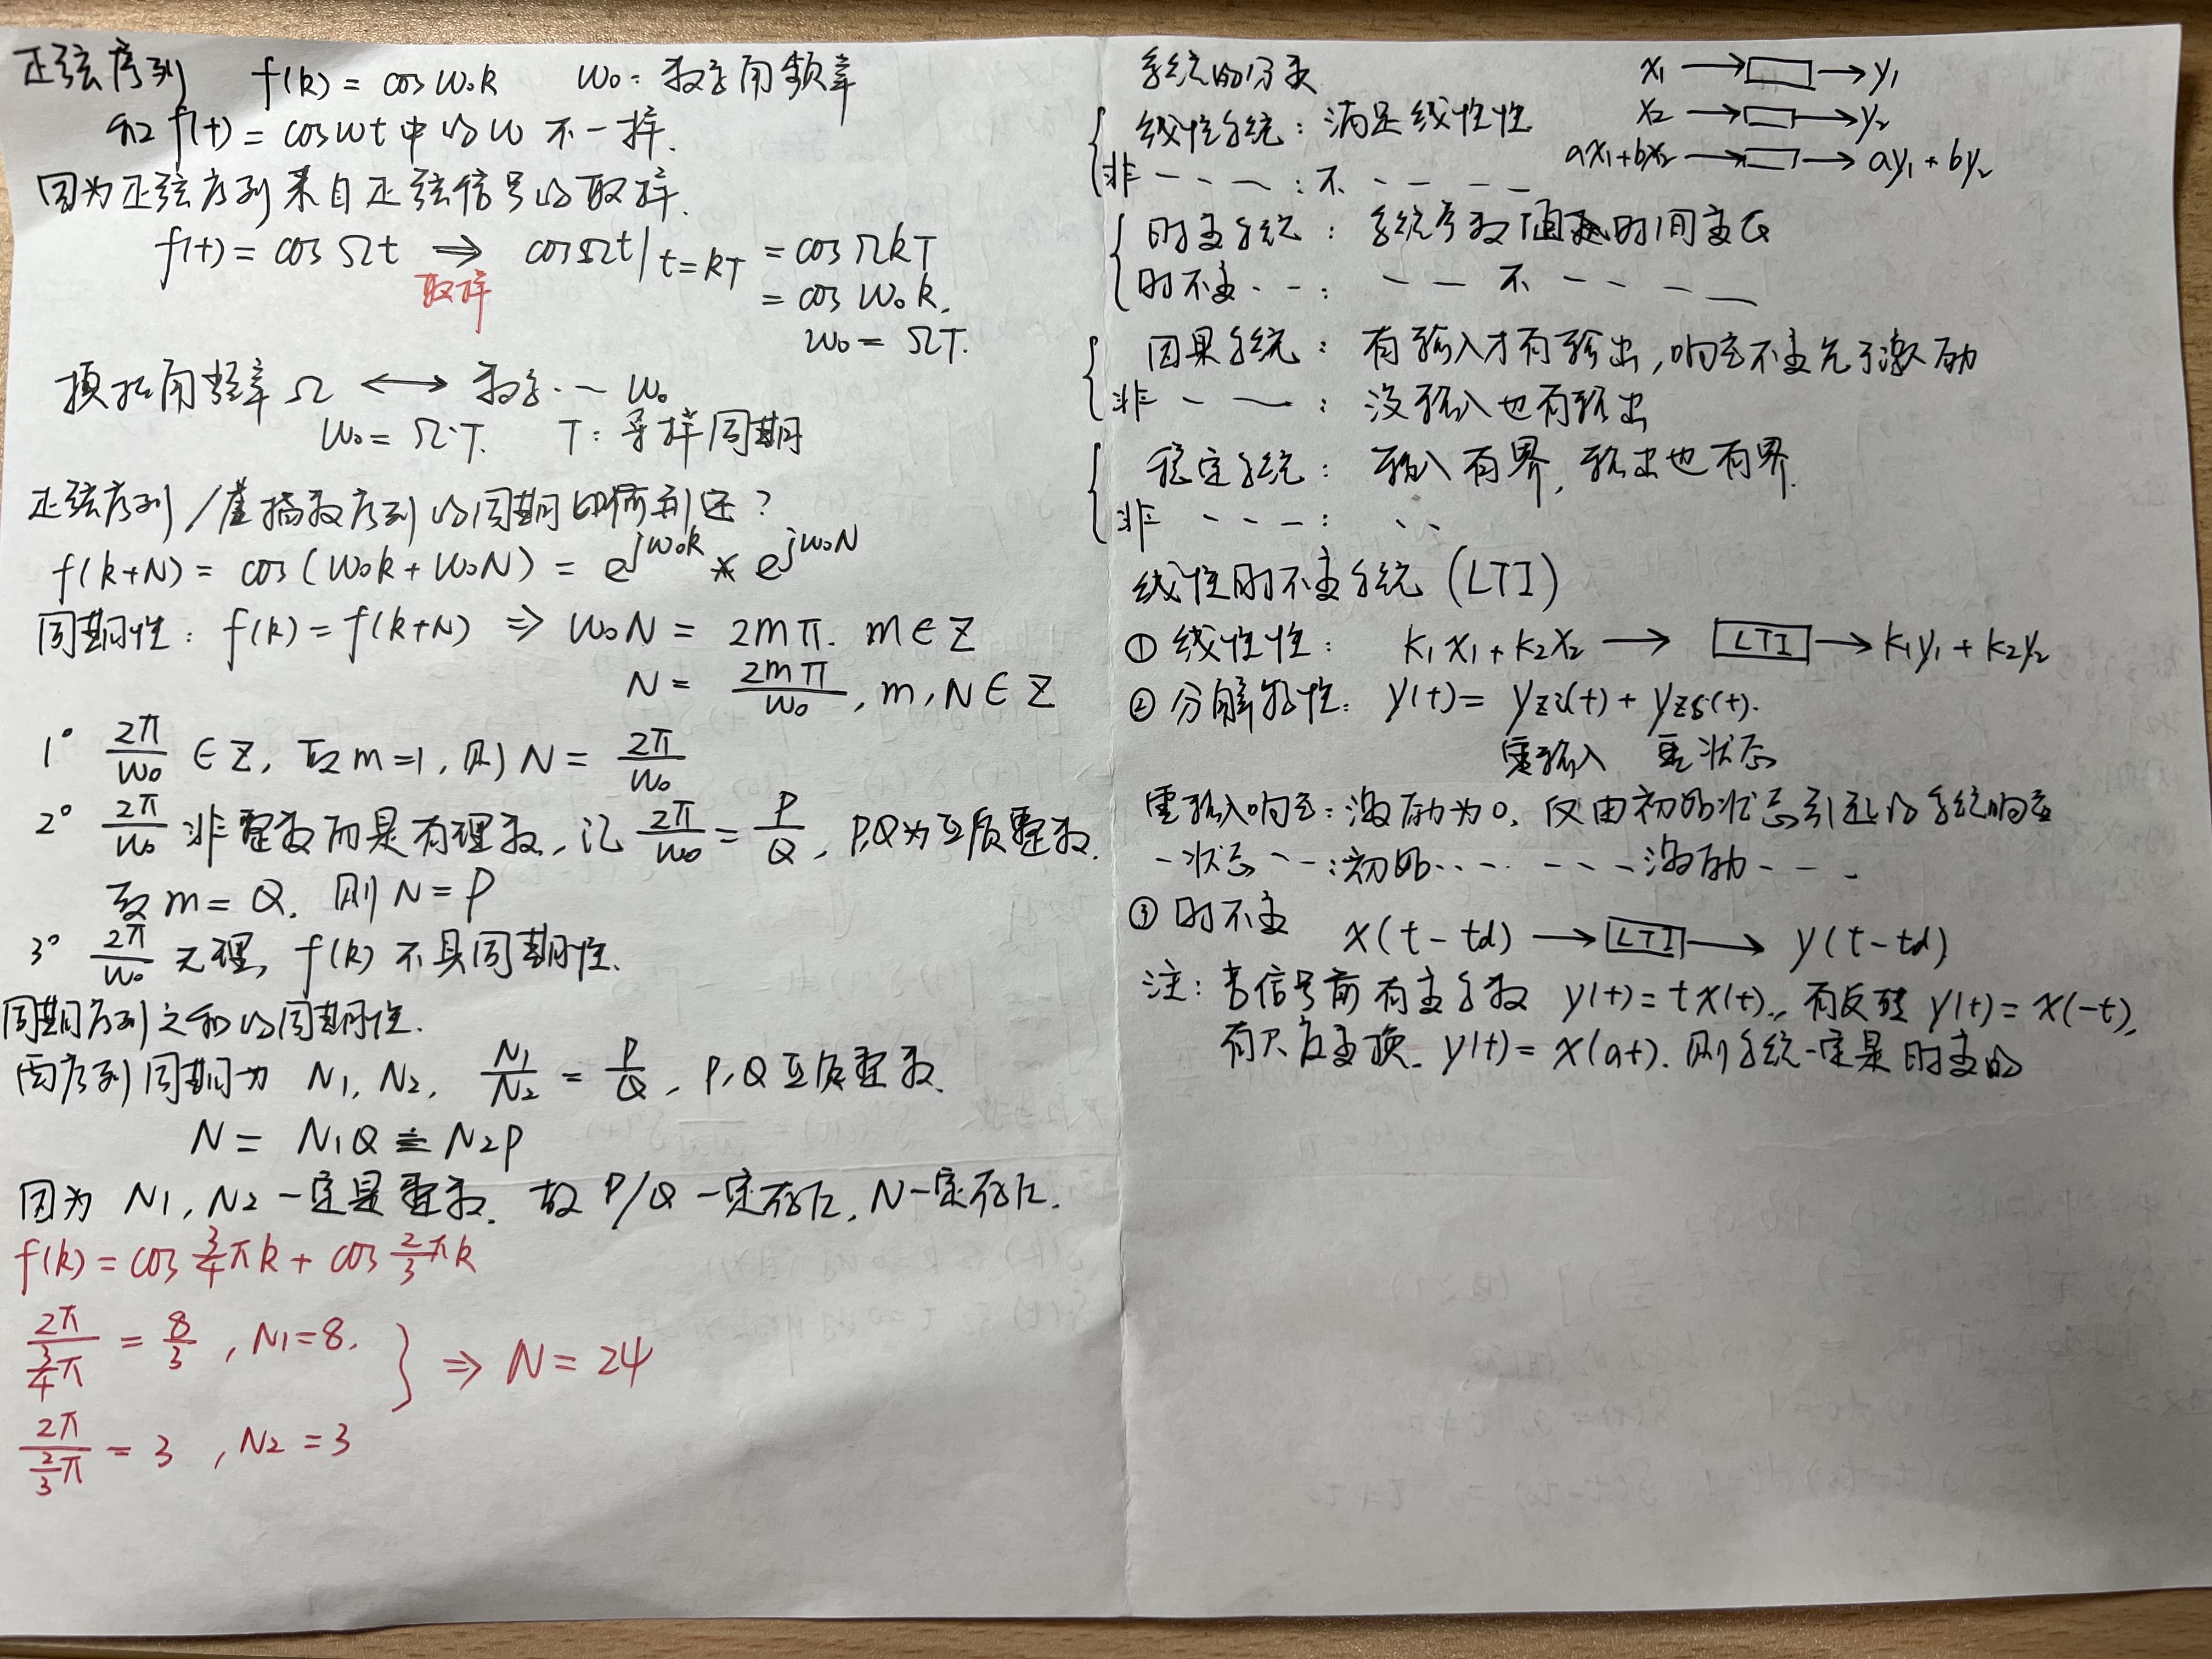 正弦序列 f(k) = cos ω₀k ω₀: 数字角频率
和 f(t) = cos ωt 中的 ω 不一样.
因为正弦序列来自正弦信号的取样.
f(t) = cos Ωt ⇒ cosΩt|t=kT = cos ΩkT
取样
= cos ω₀k.
ω₀ = ΩT.
模拟角频率 Ω ⟷ 数字·一 ω₀
ω₀ = Ω·T. T: 取样周期
正弦序列/虚指数序列的周期如何判定?
f(k+N) = cos(ω₀k + ω₀N) = e^{jω₀k} * e^{jω₀N}
周期性: f(k) = f(k+N) ⇒ ω₀N = 2mπ. m∈Z
N = 2mπ/ω₀, m,N∈Z
1° 2π/ω₀ ∈ Z, 取 m=1, 则 N = 2π/ω₀
2° 2π/ω₀ 非整数而是有理数, 记 2π/ω₀ = P/Q, P,Q为互质整数.
取 m = Q. 则 N = P
3° 2π/ω₀ 无理, f(k) 不具周期性.
周期序列之和的周期性.
两序列周期为 N₁, N₂, N₁/N₂ = P/Q, P,Q 互质整数.
N = N₁Q = N₂P
因为 N₁, N₂ 一定是整数. 故 P/Q 一定存在, N一定存在.
f(k) = cos 3/4 πk + cos 2/3 πk
2π/(3/4 π) = 8/3, N₁=8.
} ⇒ N = 24
2π/(2/3 π) = 3, N₂ = 3
系统的分类
x₁ → □ → y₁
x₂ → □ → y₂
ax₁+bx₂ → □ → ay₁+by₂
线性系统: 满足线性性
非 - - - : 不 - - - -
时变系统: 系统参数随时间变化
时不变 - - : - - 不 - - - -
因果系统: 有输入才有输出, 响应不变先于激励
非 - - : 没输入也有输出
稳定系统: 输入有界, 输出也有界.
非 - - - : - -
线性时不变系统 (LTI)
① 线性性: k₁x₁ + k₂x₂ → [LTI] → k₁y₁ + k₂y₂
② 分解特性: y(t) = yzi(t) + yzs(t).
零输入 零状态
零输入响应: 激励为0, 仅由初始状态引起的系统响应
-状态 - - : 初始 - - - - - - 激励 - - -
③ 时不变 x(t-td) → [LTI] → y(t-td)
注: 若信号前有变系数 y(t) = tx(t), 有反转 y(t) = x(-t),
有尺度变换. y(t) = x(at). 则系统一定是时变的